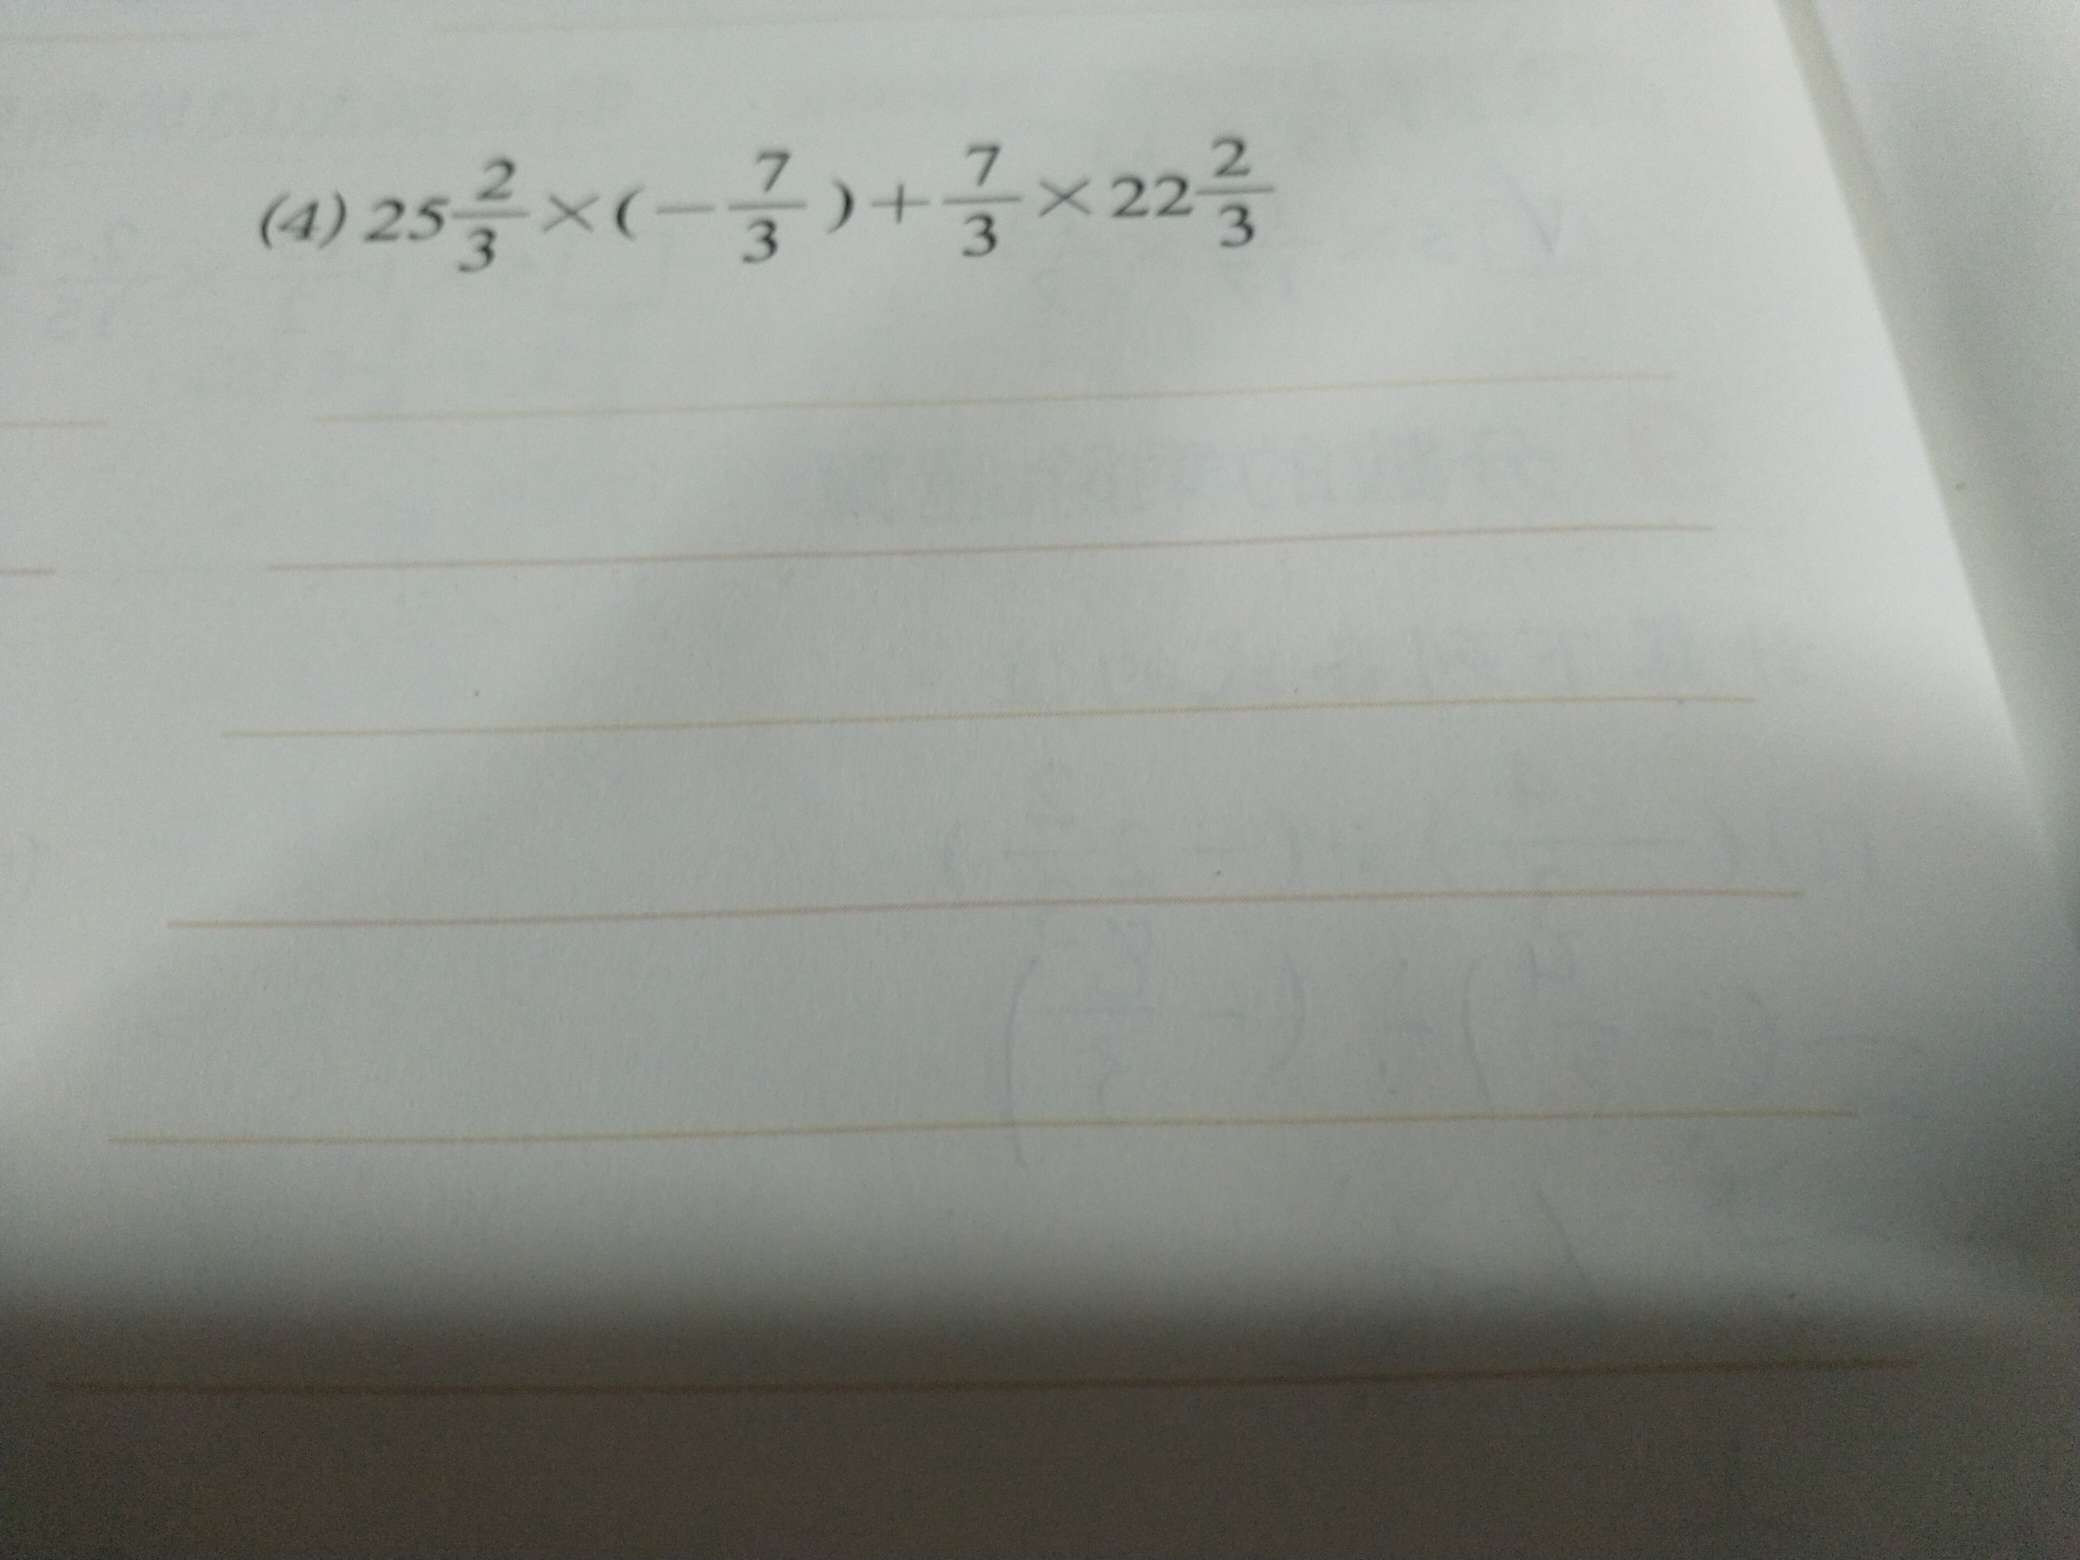 (4) 25 2/3 × (− 7/3) + 7/3 × 22 2/3